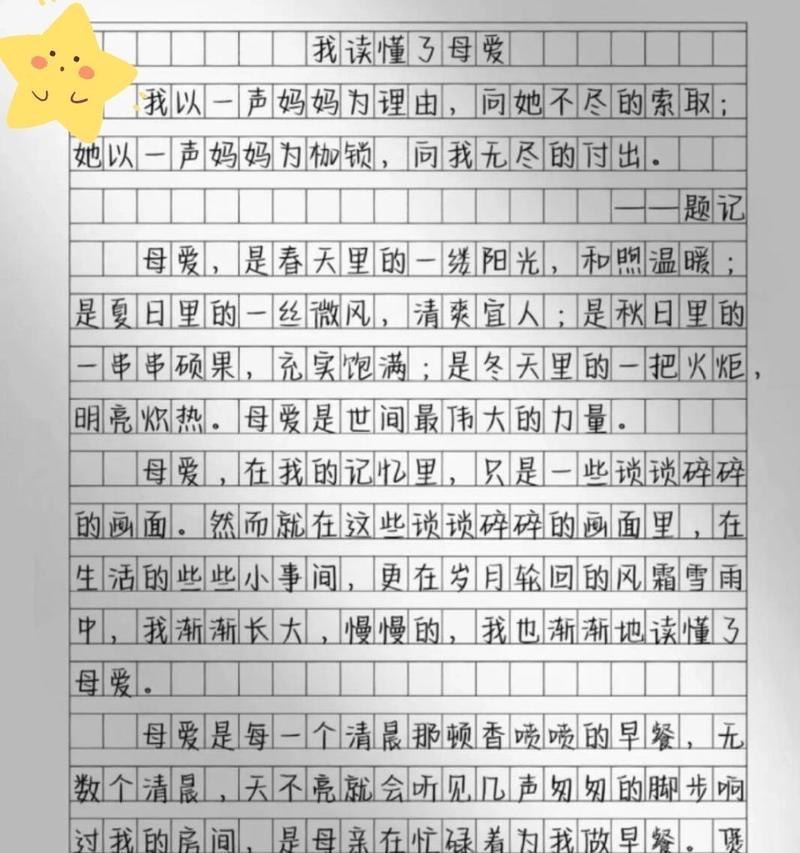 我读懂了母爱
我以一声妈妈为理由，向她不尽的索取；
她以一声妈妈为枷锁，向我无尽的付出。
——题记
母爱，是春天里的一缕阳光，和煦温暖；
是夏日里的一丝微风，清爽宜人；是秋日里的
一串串硕果，充实饱满；是冬天里的一把火炬，
明亮炽热。母爱是世间最伟大的力量。
母爱，在我的记忆里，只是一些琐琐碎碎
的画面。然而就在这些琐琐碎碎的画面里，在
生活的些些小事间，更在岁月轮回的风霜雪雨
中，我渐渐长大，慢慢的，我也渐渐地读懂了
母爱。
母爱是每一个清晨那顿香喷喷的早餐，无
数个清晨，天不亮就会听见几声匆匆的脚步响
过我的房间，是母亲在忙碌着为我做早餐。煲